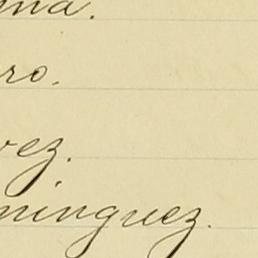 ena.
ro.
vez.
minguez.